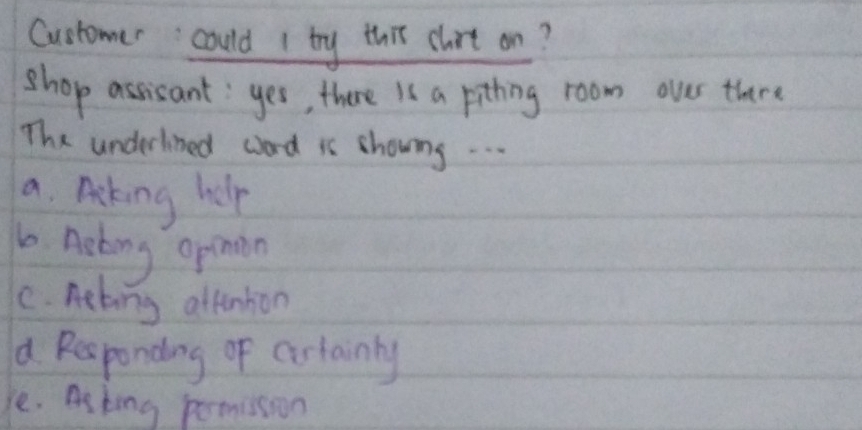 Customer : could i try this shirt on ?
Shop assisant : yes, there is a fithing room over there
The underlined word is showing ...
a. Asking help
b. Asking opinion
c. Asking attention
d. Responding of certainty
e. Asking permission